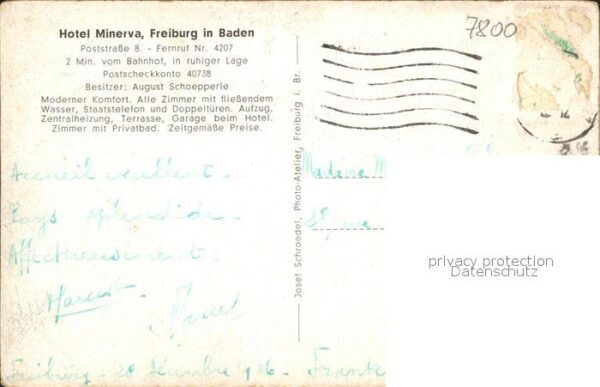 Hotel Minerva, Freiburg in Baden
Poststraße 8. - Fernruf Nr. 4207
2 Min. vom Bahnhof, in ruhiger Lage
Postscheckkonto 40738
Besitzer: August Schoepperle
Moderner Komfort. Alle Zimmer mit fließendem
Wasser, Staatstelefon und Doppeltüren. Aufzug,
Zentralheizung, Terrasse, Garage beim Hotel.
Zimmer mit Privatbad. Zeitgemäße Preise.
7800
Josef Schroedel, Photo-Atelier, Freiburg i. Br.
Accueil excellent -
Pays splendide -
Affectueusement.
Freiburg - 28 décembre 1936 -
Madame M
privacy protection
Datenschutz